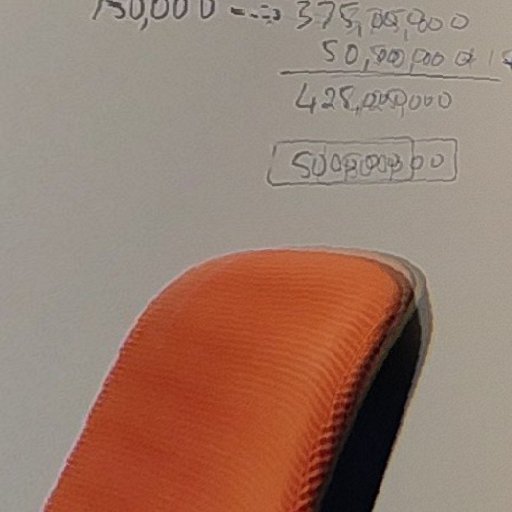 150,000 ---> 375,000,000
50,000,000
428,000,000
500,000,000